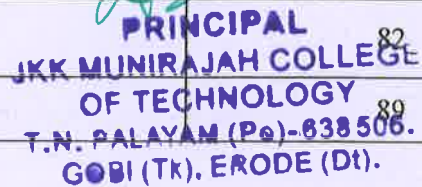 PRINCIPAL
82
JKK MUNIRAJAH COLLEGE
OF TECHNOLOGY
89
T.N. PALAYAM (Po)-638506.
GOBI (TK), ERODE (Dt).